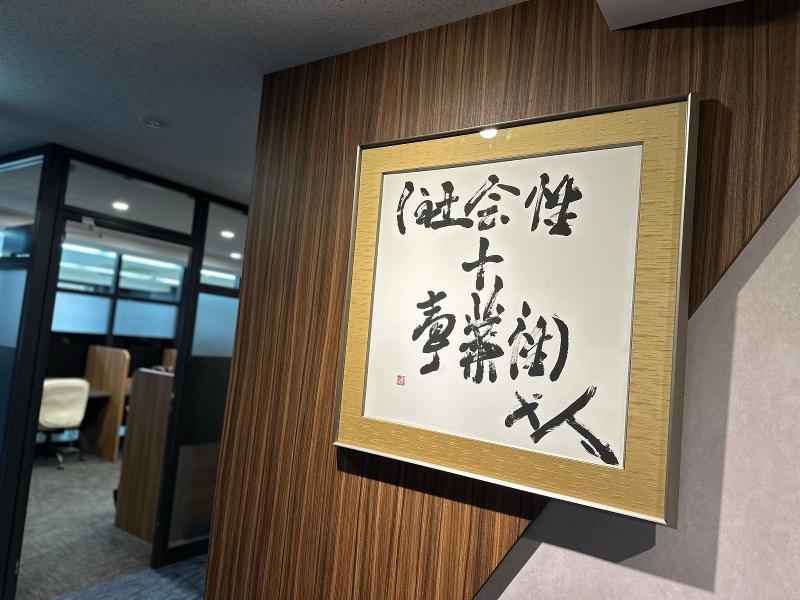 (社会性
+
事業性)
×人